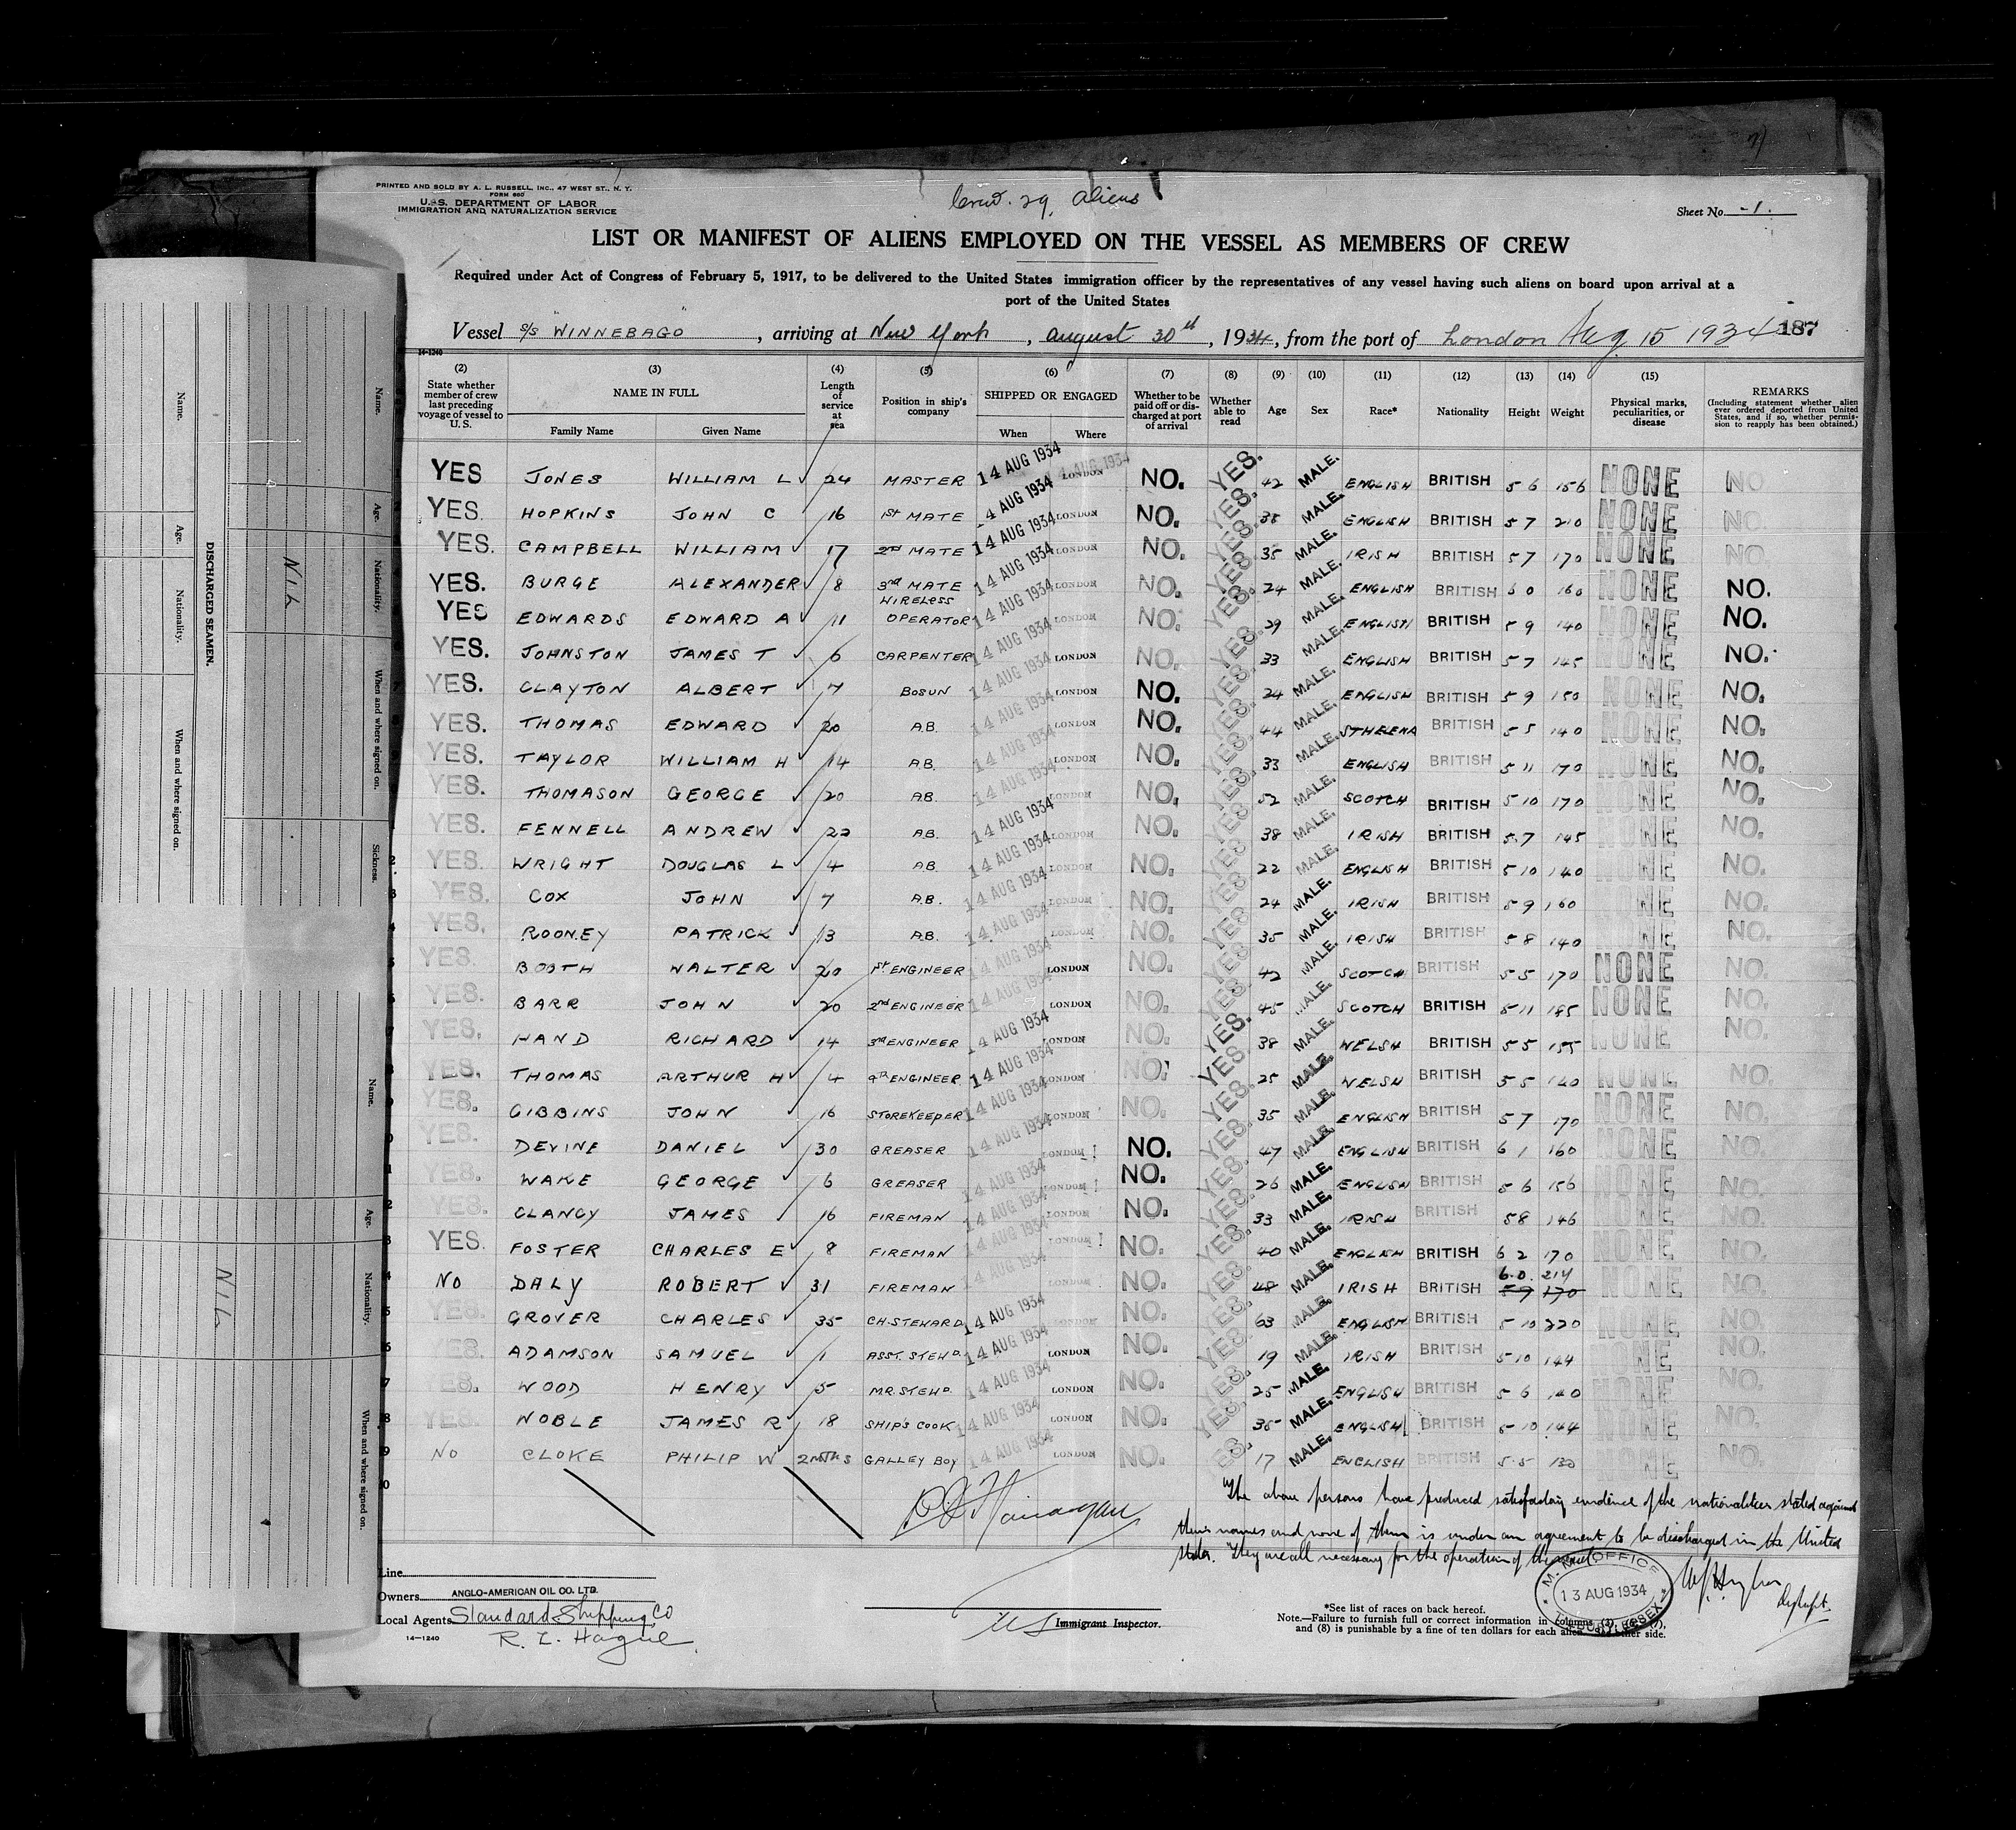 7)
PRINTED AND SOLD BY A. L. RUSSELL, INC., 47 WEST ST., N. Y.
FORM 680
U.S. DEPARTMENT OF LABOR
IMMIGRATION AND NATURALIZATION SERVICE
Crew. 29, Aliens
Sheet No. -1.
LIST OR MANIFEST OF ALIENS EMPLOYED ON THE VESSEL AS MEMBERS OF CREW
Required under Act of Congress of February 5, 1917, to be delivered to the United States immigration officer by the representatives of any vessel having such aliens on board upon arrival at a
port of the United States
Vessel S/S "WINNEBAGO", arriving at New York, August 30th, 1934, from the port of London Aug 15 1934 187
14-1240
(2) (3) (4) (5) (6) (7) (8) (9) (10) (11) (12) (13) (14) (15)
State whether member of crew last preceding voyage of vessel to U.S. NAME IN FULL Family Name Given Name Length of service at sea Position in ship's company SHIPPED OR ENGAGED When Where Whether to be paid off or discharged at port of arrival Whether able to read Age Sex Race* Nationality Height Weight Physical marks, peculiarities, or disease REMARKS (Including statement whether alien ever ordered deported from United States, and if so, whether permission to reapply has been obtained.)
YES JONES WILLIAM L 24 MASTER 14 AUG 1934 LONDON NO. YES. 42 MALE. ENGLISH BRITISH 5 6 156 NONE NO
YES. HOPKINS JOHN C 16 1st MATE 14 AUG 1934 LONDON NO. YES. 38 MALE. ENGLISH BRITISH 5 7 210 NONE NO
YES. CAMPBELL WILLIAM 17 2nd MATE 14 AUG 1934 LONDON NO. YES. 35 MALE. IRISH BRITISH 5 7 170 NONE NO
YES. BURGE ALEXANDER 8 3rd MATE 14 AUG 1934 LONDON NO. YES. 24 MALE. ENGLISH BRITISH 6 0 160 NONE NO.
YES EDWARDS EDWARD A 11 WIRELESS OPERATOR 14 AUG 1934 LONDON NO. YES. 29 MALE. ENGLISH BRITISH 5 9 140 NONE NO.
YES. JOHNSTON JAMES T 6 CARPENTER 14 AUG 1934 LONDON NO. YES. 33 MALE. ENGLISH BRITISH 5 7 145 NONE NO.
YES. CLAYTON ALBERT 7 BOSUN 14 AUG 1934 LONDON NO. YES. 24 MALE. ENGLISH BRITISH 5 9 150 NONE NO.
YES. THOMAS EDWARD 20 A.B. 14 AUG 1934 LONDON NO. YES. 44 MALE. STHELENA BRITISH 5 5 140 NONE NO.
YES. TAYLOR WILLIAM H 14 A.B. 14 AUG 1934 LONDON NO. YES. 33 MALE. ENGLISH BRITISH 5 11 170 NONE NO.
YES. THOMASON GEORGE 20 A.B. 14 AUG 1934 LONDON NO. YES. 52 MALE. SCOTCH BRITISH 5 10 170 NONE NO.
YES. FENNELL ANDREW 22 A.B. 14 AUG 1934 LONDON NO. YES. 38 MALE. IRISH BRITISH 5.7 145 NONE NO.
YES. WRIGHT DOUGLAS L 4 A.B. 14 AUG 1934 LONDON NO. YES. 22 MALE. ENGLISH BRITISH 5 10 140 NONE NO.
YES. COX JOHN 7 A.B. 14 AUG 1934 LONDON NO. YES. 24 MALE. IRISH BRITISH 5 9 160 NONE NO.
YES. ROONEY PATRICK 13 A.B. 14 AUG 1934 LONDON NO. YES. 35 MALE. IRISH BRITISH 5 8 140 NONE NO.
YES. BOOTH WALTER 20 1st ENGINEER 14 AUG 1934 LONDON NO. YES. 42 MALE. SCOTCH BRITISH 5 5 170 NONE NO.
YES. BARR JOHN 20 2nd ENGINEER 14 AUG 1934 LONDON NO. YES. 45 MALE. SCOTCH BRITISH 5 11 185 NONE NO.
YES. HAND RICHARD 14 3rd ENGINEER 14 AUG 1934 LONDON NO. YES. 38 MALE. WELSH BRITISH 5 5 155 NONE NO.
YES. THOMAS ARTHUR H 4 4th ENGINEER 14 AUG 1934 LONDON NO. YES. 25 MALE. WELSH BRITISH 5 5 140 NONE NO.
YES. GIBBINS JOHN 16 STOREKEEPER 14 AUG 1934 LONDON NO. YES. 35 MALE. ENGLISH BRITISH 5 7 170 NONE NO.
YES. DEVINE DANIEL 30 GREASER 14 AUG 1934 LONDON NO. YES. 47 MALE. ENGLISH BRITISH 6 1 160 NONE NO.
YES. WAKE GEORGE 6 GREASER 14 AUG 1934 LONDON NO. YES. 26 MALE. ENGLISH BRITISH 5 6 156 NONE NO.
YES. CLANCY JAMES 16 FIREMAN 14 AUG 1934 LONDON NO. YES. 33 MALE. IRISH BRITISH 5 8 146 NONE NO.
YES. FOSTER CHARLES E 8 FIREMAN 14 AUG 1934 LONDON NO. YES. 40 MALE. ENGLISH BRITISH 6 2 170 NONE NO.
NO DALY ROBERT 31 FIREMAN 14 AUG 1934 LONDON NO. YES. 48 MALE. IRISH BRITISH 6.0. 214 5 9 170 NONE NO.
YES. GROVER CHARLES 35 CH.STEWARD 14 AUG 1934 LONDON NO. YES. 63 MALE. ENGLISH BRITISH 5 10 220 NONE NO.
YES. ADAMSON SAMUEL 1 ASST. STEWD. 14 AUG 1934 LONDON NO. YES. 19 MALE. IRISH BRITISH 5 10 144 NONE NO.
YES. WOOD HENRY 5 MR. STEWD. 14 AUG 1934 LONDON NO. YES. 25 MALE. ENGLISH BRITISH 5 6 140 NONE NO.
YES. NOBLE JAMES R 18 SHIP'S COOK 14 AUG 1934 LONDON NO. YES. 35 MALE. ENGLISH BRITISH 5 10 144 NONE NO.
NO CLOKE PHILIP W 2 MTHS GALLEY BOY 14 AUG 1934 LONDON NO. YES. 17 MALE. ENGLISH BRITISH 5.5 130 NONE NO.
The above persons have produced satisfactory evidence of the nationalities stated against
their names and none of them is under an agreement to be discharged in the United
States. They are all necessary for the operation of the vessel.
Line
Owners ANGLO-AMERICAN OIL CO. LTD.
Local Agents Standard Shipping Co
R. L. Hague
14-1240
Immigrant Inspector.
M. M. OFFICE
13 AUG 1934
ESSEX
*See list of races on back hereof.
Note.—Failure to furnish full or correct information in columns (3), (5), (7),
and (8) is punishable by a fine of ten dollars for each alien. See other side.
DISCHARGED SEAMEN.
Name. Age. Nationality. When and where signed on.
Name. Age. Nationality. When and where signed on. Sickness.
NIL
Name. Age. Nationality. When and where signed on.
NIL